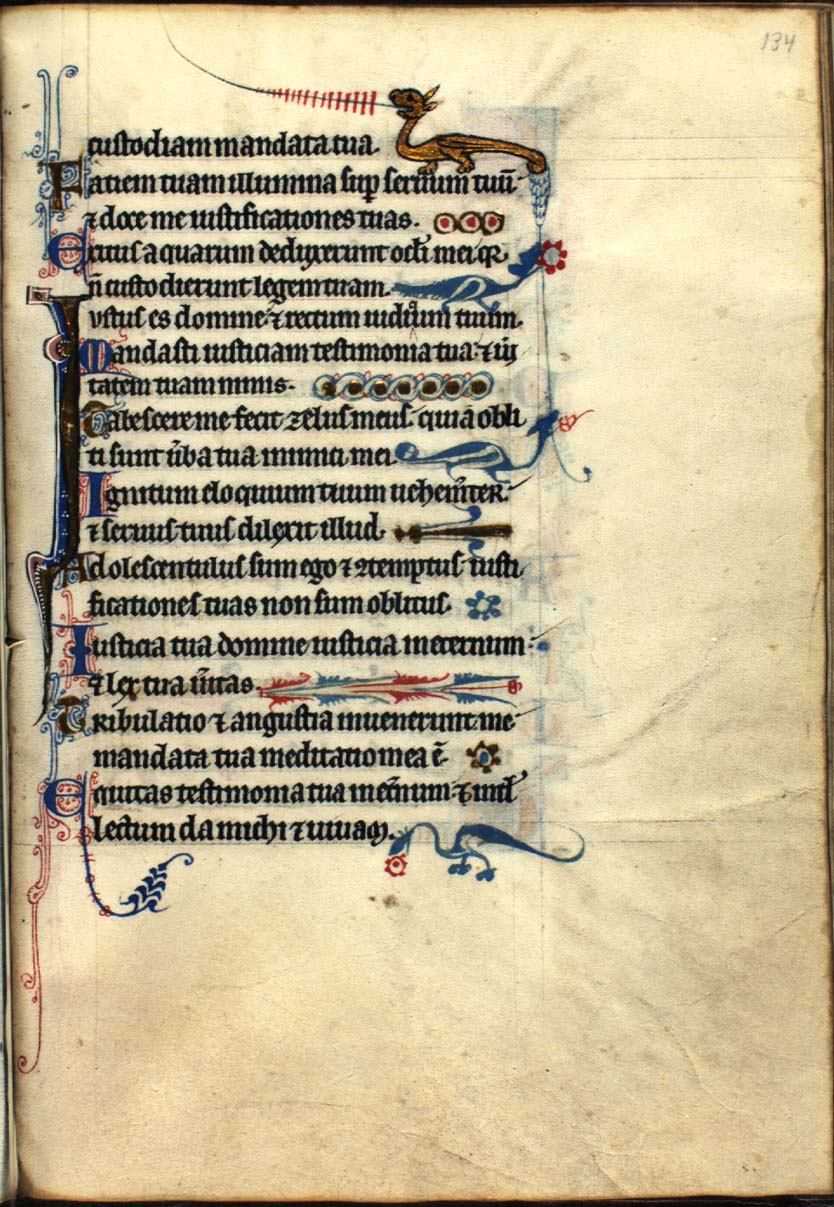 134
custodiam mandata tua
Faciem tuam illumina sup seruum tuū
⁊ doce me iustificationes tuas.
Exitus aquarum deduxerunt oculi mei qꝛ
n̄ custodierunt legem tuam.
Iustus es domine ⁊ rectum iudiciū tuum.
Mandasti iusticiam testimonia tua ⁊ ūi
tatem tuam nimis.
Tabescere me fecit zelus meus quia obli
ti sunt ūba tua inimici mei
Ignitum eloquium tuum uehem̄ter
⁊ seruus tuus dilexit illud.
Adolescentulus sum ego ⁊ ꝯtemptus iusti
ficationes tuas non sum oblitus.
Iusticia tua domine iusticia in eternum
⁊ lex tua ūitas
Tribulatio ⁊ angustia inuenerunt me
mandata tua meditatio mea ē.
Equitas testimonia tua in et̄num intel
lectum da michi ⁊ uiuam.